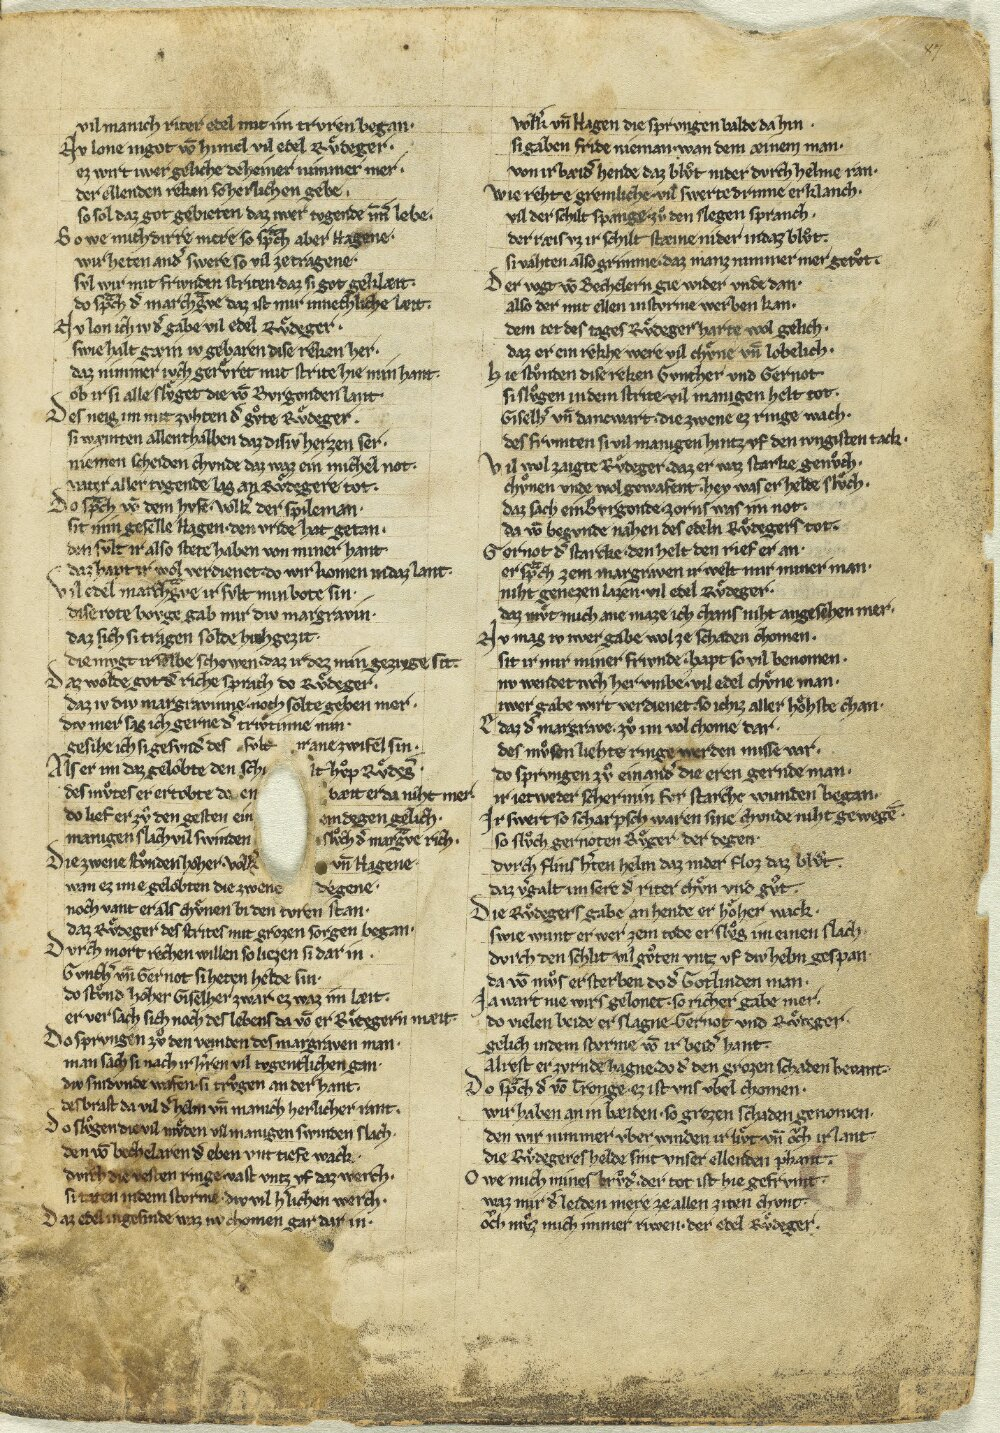 vil manich riter edel mit im trvren began·
Nv lone iu got vō himel vil edel Rv̊deger·
ez wirt iwer geliche deheiner nimmer mer·
der ellenden reken so herlichen gebe·
so sol daz got gebieten daz iwer tvgende im̄ lebe·
So we mich dirre mere so sp̄ch aber Hagene·
wir heten and͛ swere so vil ze tragene·
svl wir mit frivnden striten daz si got gekläit·
do sp̄ch d͛ march̄gve daz ist mir innechliche læit·
Nv lon ich iv d͛ gabe vil edel Rv̊deger·
swie halt gein iv gebaren dise reken her·
daz nimmer ivch gerv̊ret mit strite hie min hant·
ob ir si alle slv̊get die vō Bvrgonden lant
Des neig im mit zvhten d͛ gv̊te Rv̊deger·
si wæinten allenthalben daz disiv herzen ser·
niemen scheiden chvnde daz waz ein michel not·
vater aller tvgende lag an Rv̊degere tot·
Do sp̄ch vō dem hvse·Volk͛ der spileman·
sit min geselle Hagen·den vride hat getan·
den svlt ir also stete haben von miner hant
daz hapt ir wol verdienet·do wir komen in daz lant·
Vil edel march̄gve ir svlt min bote sin·
dise rote bovge gab mir div margravin·
daz sich si tragen solde hie ze hochgezit·
die mvgt ir selbe schowen·daz ir dez min gezivge sit·
Daz wolde got d͛ riche sprach do Rv̊deger·
daz iv div margravinne·noch solte geben mer·
div mer sag ich gerne d͛ trivtinne min·
gesihe ich si gesvnd͛ des svlt ir ane zwifel sin·
Als er im daz gelobte den schilt hv̊p Rv̊deg͛·
des mv̊tes er ertobte do en bæit er da niht mer
do lief er zv̊ den gesten ein em degen gelich·
manigen slach vil swinden slv̊ch d͛ marḡve rich·
Die zwene stv̊nden hoher·volk͛ vn̄ Hagene·
wan ez im e gelobten die zwene degene·
noch vant er als chv̊nen bi den tvren stan·
daz Rv̊deger des strites mit grozen sorgen began·
Dvrch mort rechen willen so liezen si dar in·
Gvnth͛ vn̄ Gernot si heten helde sin·
do stv̊nd hoher Giselher zwar ez waz im læit·
er versach sich noch des lebens da vō er Rv̊degern mæit·
Do sprvngen zv̊ den veinden des margraven man·
man sach si nach ir h͛ren vil tvgentlichen gan·
div snidvnde wafen·si trv̊gen an der hant·
des brast da vil d͛ helm vn̄ manich herlicher rant·
Do slv̊gen die vil mv̊den vil manigen swinden slach·
den vō bechelaren d͛ eben vnt tiefe wack·
dvrch die vesten ringe·vast vntz vf daz werch·
si taten in dem storme·div vil h͛lichen werch·
Daz edel ingesinde waz nv chomen gar dar in·
volk͛ vn̄ Hagen die sprvngen balde da hin·
si gaben fride nieman·wan dem æinem man·
von ir bæid͛ hende daz blv̊t nider dvrch helme ran·
Wie rehte gremliche·vil swerte drinne erklanch·
vil der schilt spange·zv̊ den slegen spranch·
der ræis vz ir schilt stæine nider in daz blv̊t·
si vahten also grimme·daz manz nimmer mer getv̊t·
Der vogt vō Bechelern gie wider vnde dan·
also der mit ellen in stvrme werben kan·
dem tet des tages Rv̊deger harte wol gelich·
daz er ein rekche were vil chv̊ne vn̄ lobelich·
Hie stv̊nden dise reken Gvnther vnd Gernot
si slv̊gen in dem strite·vil manigen helt tot·
Giselh͛ vn̄ dancwart·die zwene ez ringe wach·
des frvmten si vil manigen hintz vf den ivngisten tack·
Vil wol zaigte Rv̊deger·daz er waz starke genv̊ch·
chv̊nen vnde wol gewafent·hey was er helde slv̊ch·
daz sach ein bvrigonde·zorns was im not·
da vō begvnde nahen des edeln Rv̊degers tot·
Gernot d͛ starcke·den helt den rief er an·
er sp̄ch zem margraven ir welt mir miner man·
niht genezen lazen·vil edel Rv̊deger·
daz mv̊t mich ane maze ich chans niht angesehen mer·
Nv mag iv iwer gabe wol ze schaden chomen·
sit ir mir miner frivnde·hapt so vil benomen·
nv wendet ivch her vmbe·vil edel chv̊ne man·
iwer gabe wirt verdienet·so ichz aller hȯhste chan·
E daz d͛ margrave·zv̊ im vol chome dar·
des mv̊sen liehte ringe werden misse var·
do sprvngen zv̊ ein and͛ die eren gernde man·
ir ietweder schermin fvr starche wunden began·
Ir swert so scharpsch waren sine chvnde niht gewegē·
so slv̊ch gernoten Rv̊ger der degen·
dvrch flins h͛ten helm daz nider floz daz blv̊t·
daz v͛galt im sere d͛ riter chv̊n vnd gv̊t·
Die Rv̊degers gabe an hende er hȯher wack·
swie wunt er wer zem tode er slv̊g im einen slach·
dvrch den schilt vil gv̊ten vntz vf div helm gespan·
da vō mv̊s ersterben do d͛ Gotlinden man·
Ja wart nie wirs gelonet·so richer gabe mer·
do vielen beide erslagne Gernot vnd Rv̊deger·
gelich in dem storme vō ir beid͛ hant·
alrest erzvrnde hagne·do d͛ den grozen schaden bevant·
Do sp̄ch d͛ vō Tronge·ez ist vns vbel chomen·
wir haben an in bæiden·so grozen schaden genomen·
den wir nimmer vber winden ir livt vn̄ ȯch ir lant·
die Rv̊degeres helde sint vnser ellenden phant·
Owe mich mines brv̊d͛·der tot ist hie gefrvmt·
waz mir d͛ leiden mere ze allen ziten chvmt·
ȯch mv̊z mich immer riwen·der edel Rv̊deger·